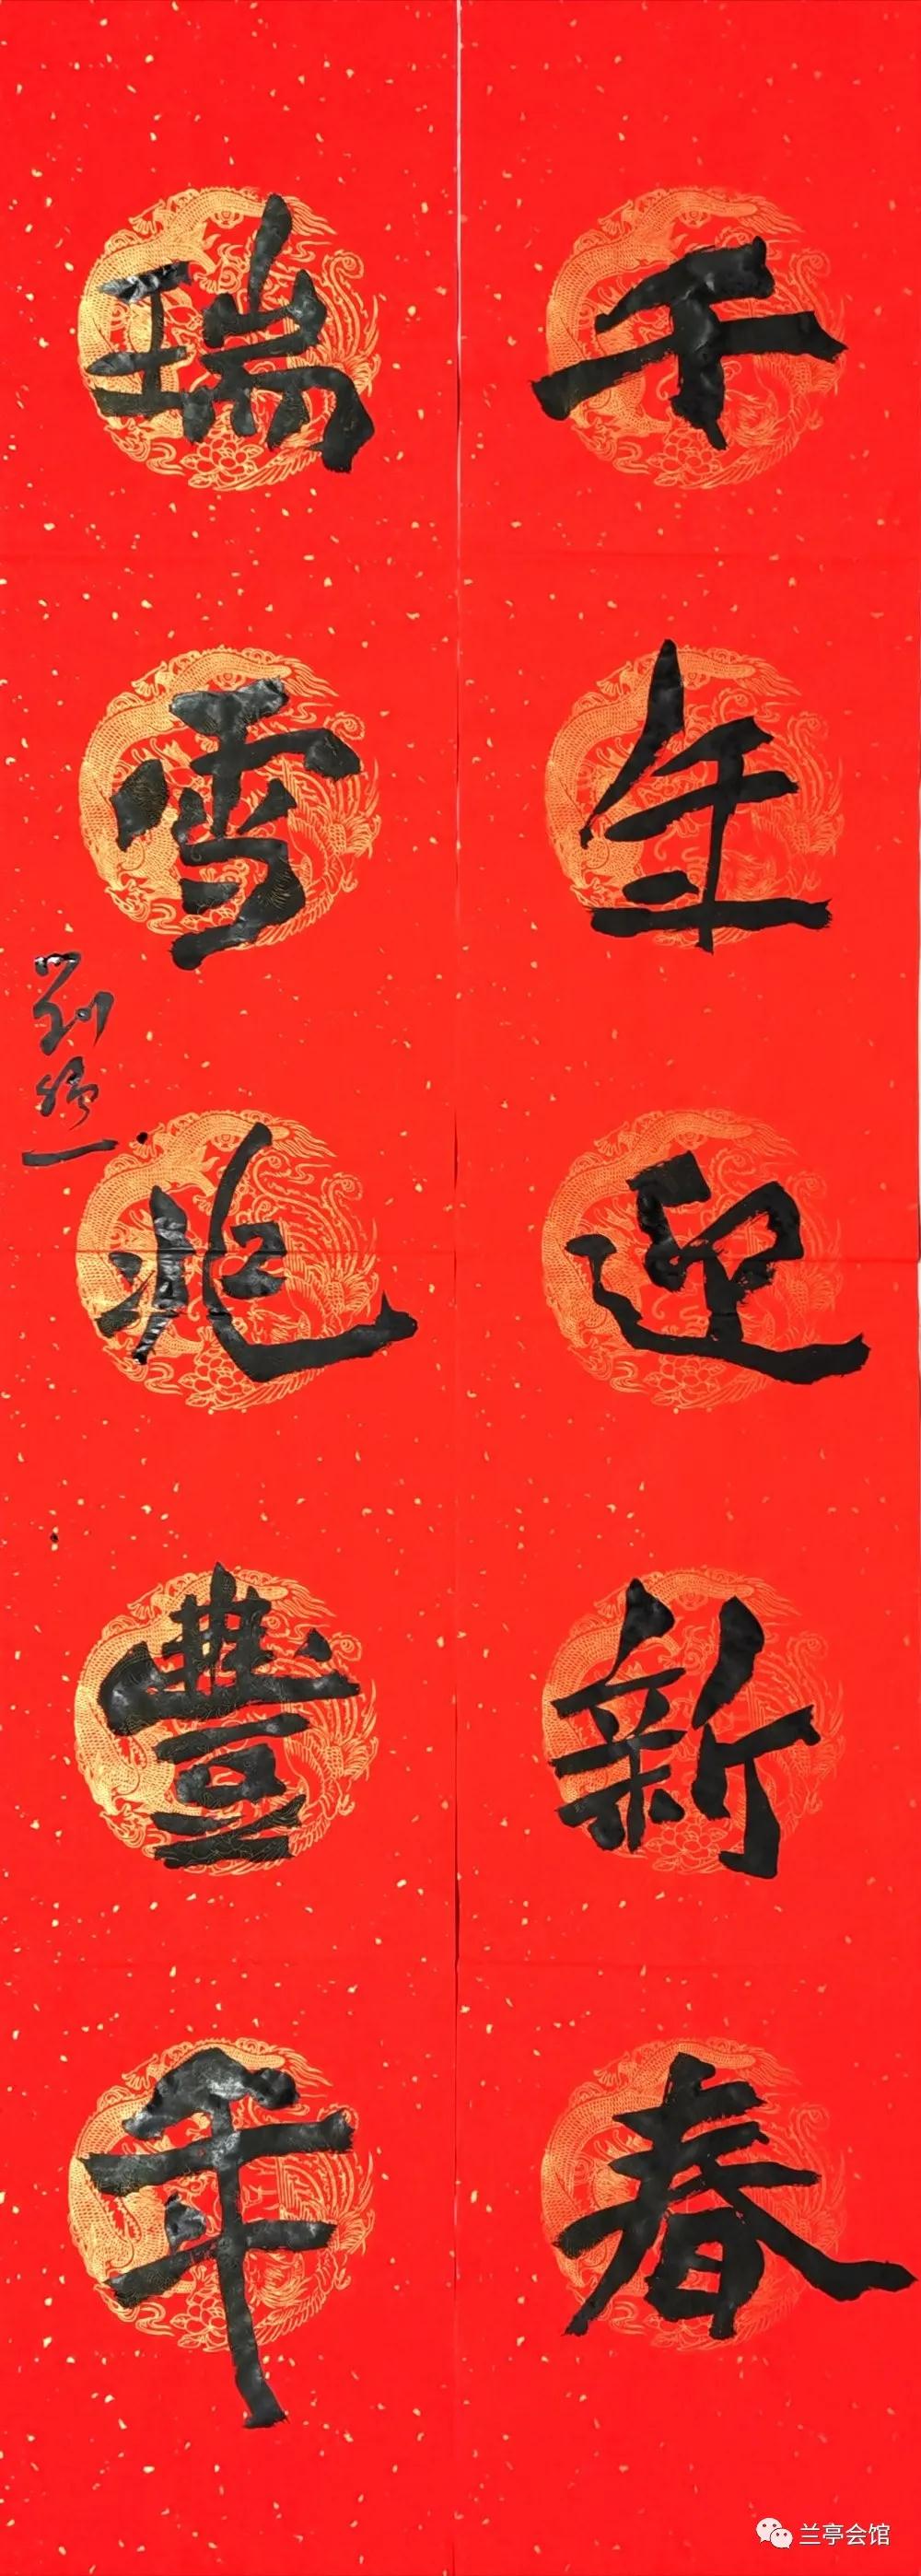 千年迎新春
瑞雪兆豐年
劉一
兰亭会馆